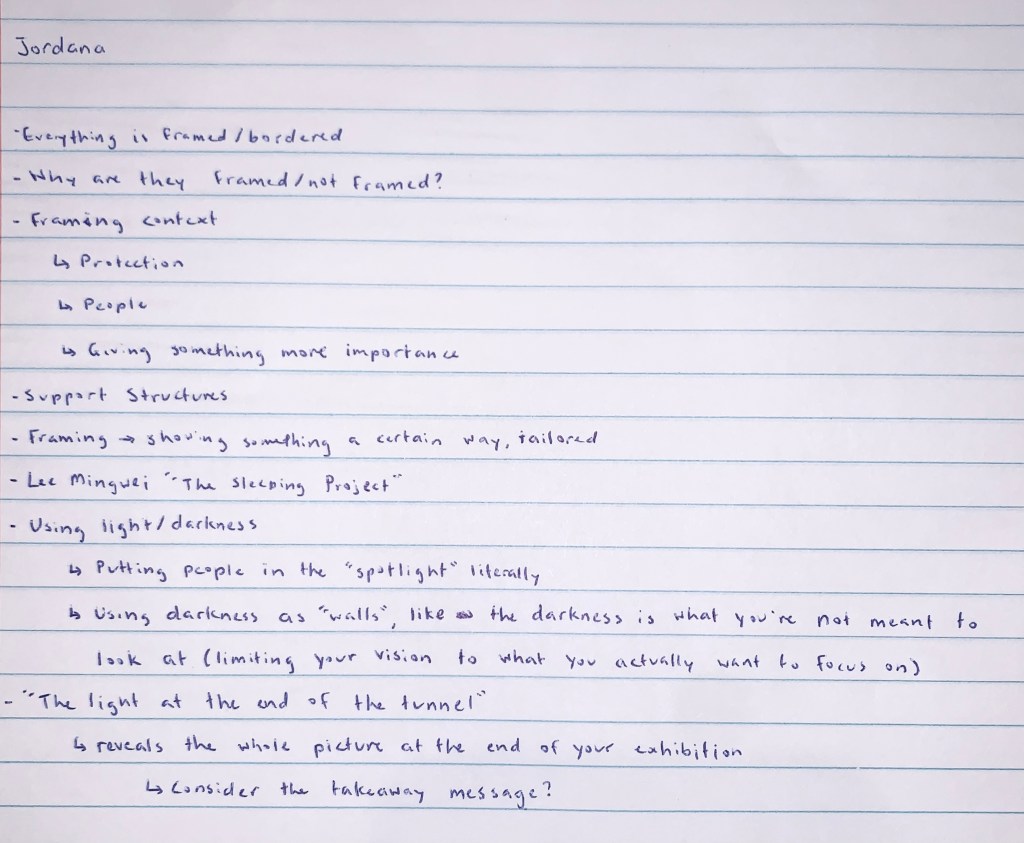 Jordana
- Everything is framed/bordered
- Why are they framed/not framed?
- Framing context
↳ Protection
↳ People
↳ Giving something more importance
- Support Structures
- Framing → showing something a certain way, tailored
- Lee Mingwei "The Sleeping Project"
- Using light/darkness
↳ Putting people in the "spotlight" literally
↳ Using darkness as "walls", like the darkness is what you're not meant to
look at (limiting your vision to what you actually want to focus on)
- "The light at the end of the tunnel"
↳ reveals the whole picture at the end of your exhibition
↳ Consider the takeaway message?